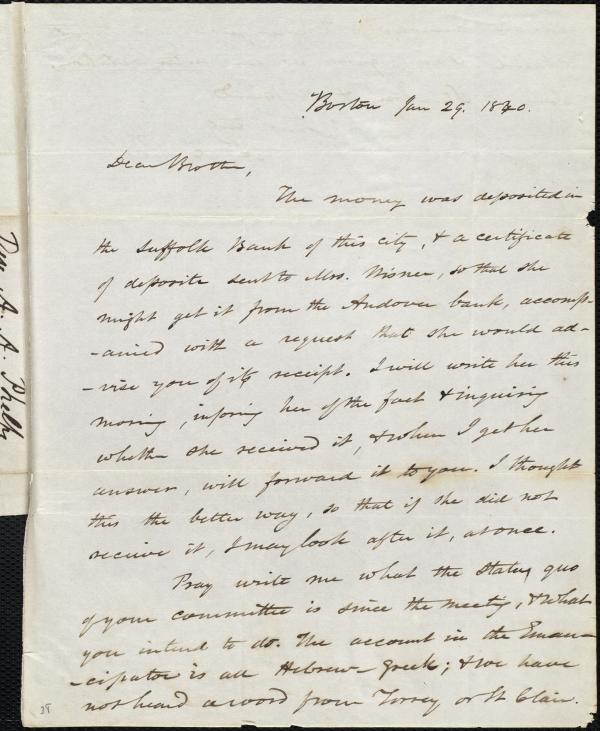 Boston Jan 29. 1840.
Dear Brother,
The money was deposited in
the Suffolk Bank of this city, & a certificate
of deposite sent to Mrs. Wisner, so that she
might get it from the Andover bank, accomp-
-anied with a request that she would ad-
-vise you of its receipt. I will write her this
morning, inforing her of the fact & inquiring
whether she received it, & when I get her
answer, will forward it to you. I thought
this the better way, so that if she did not
receive it, I may look after it, at once.
Pray write me what the status quo
of your committee is since the meeting, & what
you intend to do. The account in the Eman-
-cipator is all Hebrew-Greek; & we have
not heard a word from Torrey or St Clair.
Dea. A. A. Phelps
38